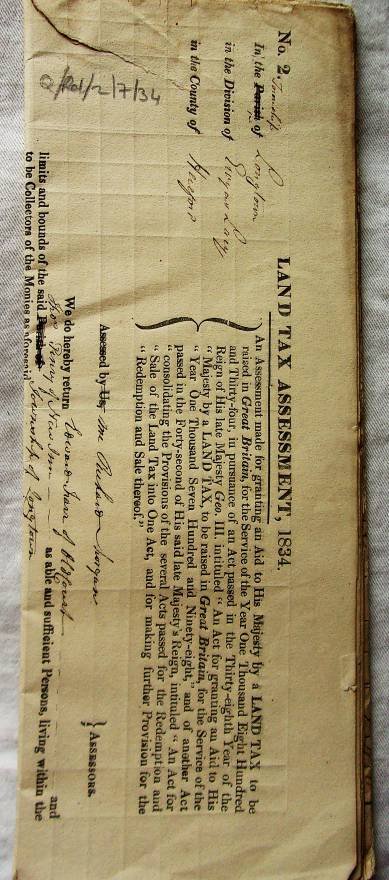 No. 2.
LAND TAX ASSESSMENT, 1834.
Township
In the Parish of Longtown
in the Division of Ewyas Lacy
in the County of Hereford
An Assessment made for granting an Aid to His Majesty by a LAND TAX to be
raised in Great Britain, for the Service of the Year One Thousand Eight Hundred
and Thirty-four, in pursuance of an Act passed in the Thirty-eighth Year of the
Reign of His late Majesty Geo. III. intituled "An Act for granting an Aid to His
"Majesty by a LAND TAX, to be raised in Great Britain, for the Service of the
"Year One Thousand Seven Hundred and Ninety-eight," and of another Act
passed in the Forty-second of His said late Majesty's Reign, intituled "An Act for
"consolidating the Provisions of the several Acts passed for the Redemption and
"Sale of the Land Tax into One Act, and for making further Provision for the
"Redemption and Sale thereof."
Q/Rel/2/7/34
Assessed by Us, me Richard
ASSESSORS.
We do hereby return Edward of Oldcourt and
Thos Perry of New Inn as able and sufficient Persons, living within the
limits and bounds of the said Parish of Township of Longtown
to be Collectors of the Monies as aforesaid